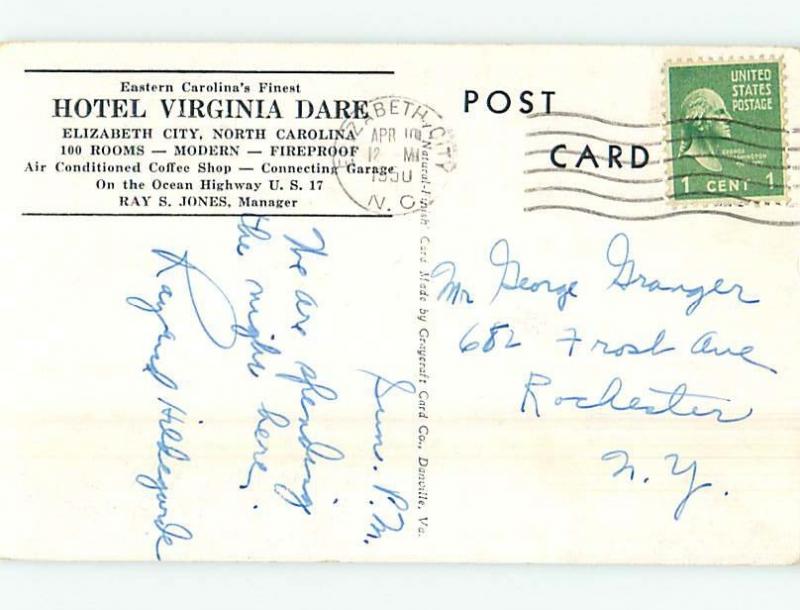 Eastern Carolina's Finest
HOTEL VIRGINIA DARE
ELIZABETH CITY, NORTH CAROLINA
100 ROOMS — MODERN — FIREPROOF
Air Conditioned Coffee Shop — Connecting Garage
On the Ocean Highway U. S. 17
RAY S. JONES, Manager
ELIZABETH CITY
APR 10
12 M
1950
N. C.
POST
CARD
UNITED
STATES
POSTAGE
GEORGE
WASHINGTON
1 CENT 1
"Natural-Finish" Card Made by Graycraft Card Co., Danville, Va.
Sun. P.M.
We are spending
the night here.
Ray and Hildegarde
Mr George Granger
682 Frost Ave
Rochester
N. Y.